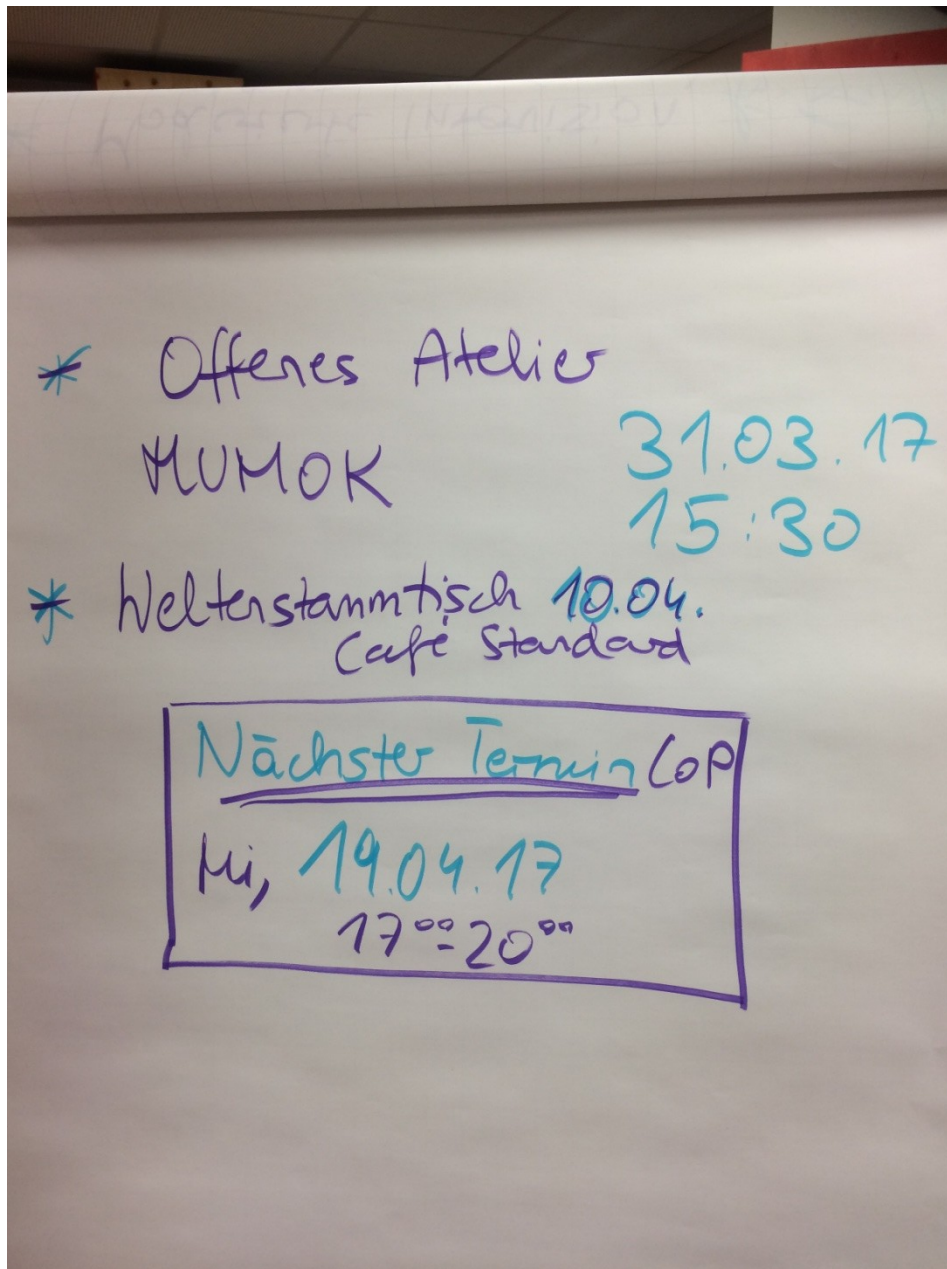 * Offenes Atelier
MUMOK 31.03.17
15:30
* Weltenstammtisch 10.04.
Café Standard
Nächster Termin CoP
Mi, 19.04.17
17⁰⁰-20⁰⁰